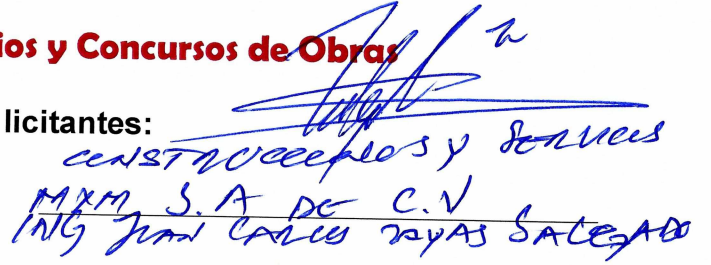 ios y Concursos de Obras
licitantes:
CONSTRUCCIONES Y SERVICIOS
MXM S.A DE C.V
ING JUAN CARLOS ROJAS SALGADO